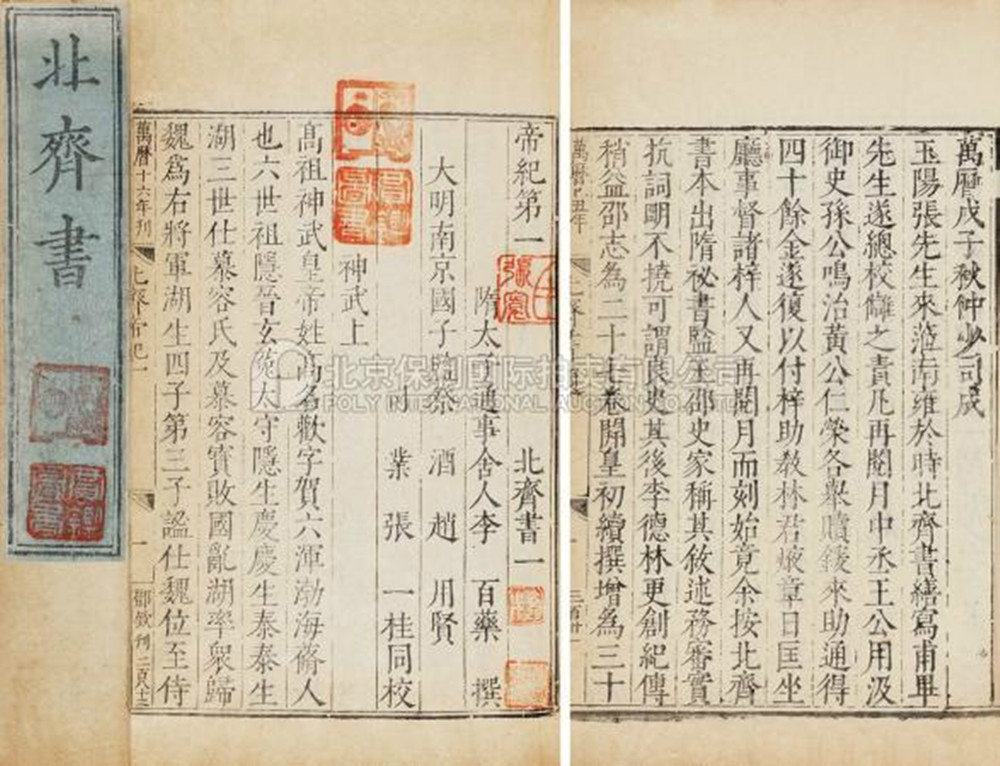 北齊書
帝紀第一 北齊書一
隋太子通事舍人李 百藥 撰
大明南京國子監祭 酒 趙 用賢
司 業 張 一桂同校
神武上
髙祖神武皇帝姓髙名歡字賀六渾渤海蓨人
也六世祖隱晉玄菟太守隱生慶慶生泰泰生
湖三世仕慕容氏及慕容寶敗國亂湖率衆歸
魏爲右將軍湖生四子第三子謐仕魏位至侍
萬曆十六年刊
一
萬曆戊子秋仲少司成
玉陽張先生來涖南雍於時北齊書繕寫甫畢
先生遂總校讎之責凡再閱月中丞王公用汲
御史孫公鳴治黃公仁榮各舉贖鍰來助通得
四十餘金遂復以付梓助敎林君㷆章日匡坐
廳事督諸梓人又再閱月而刻始竟余按北齊
書本出隋祕書監王邵史家稱其敘述務審實
抗詞明不撓可謂良史其後李德林更創紀傳
稍益邵志為二十七卷開皇初續撰增為三十
萬曆十七年
北京保利国际拍卖有限公司
POLY INTERNATIONAL AUCTION CO.,LTD